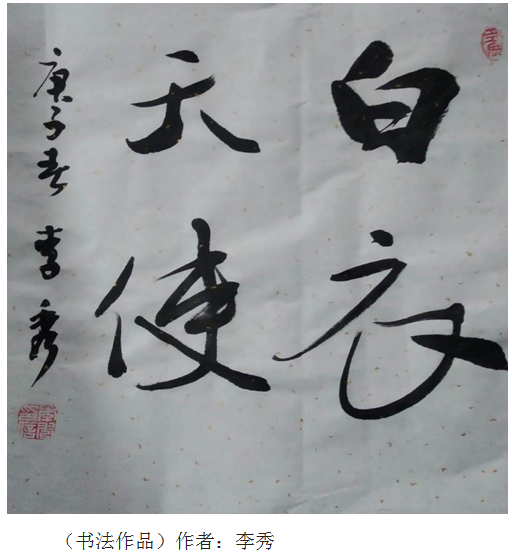 白衣
天使
庚子春 李秀
（书法作品）作者：李秀